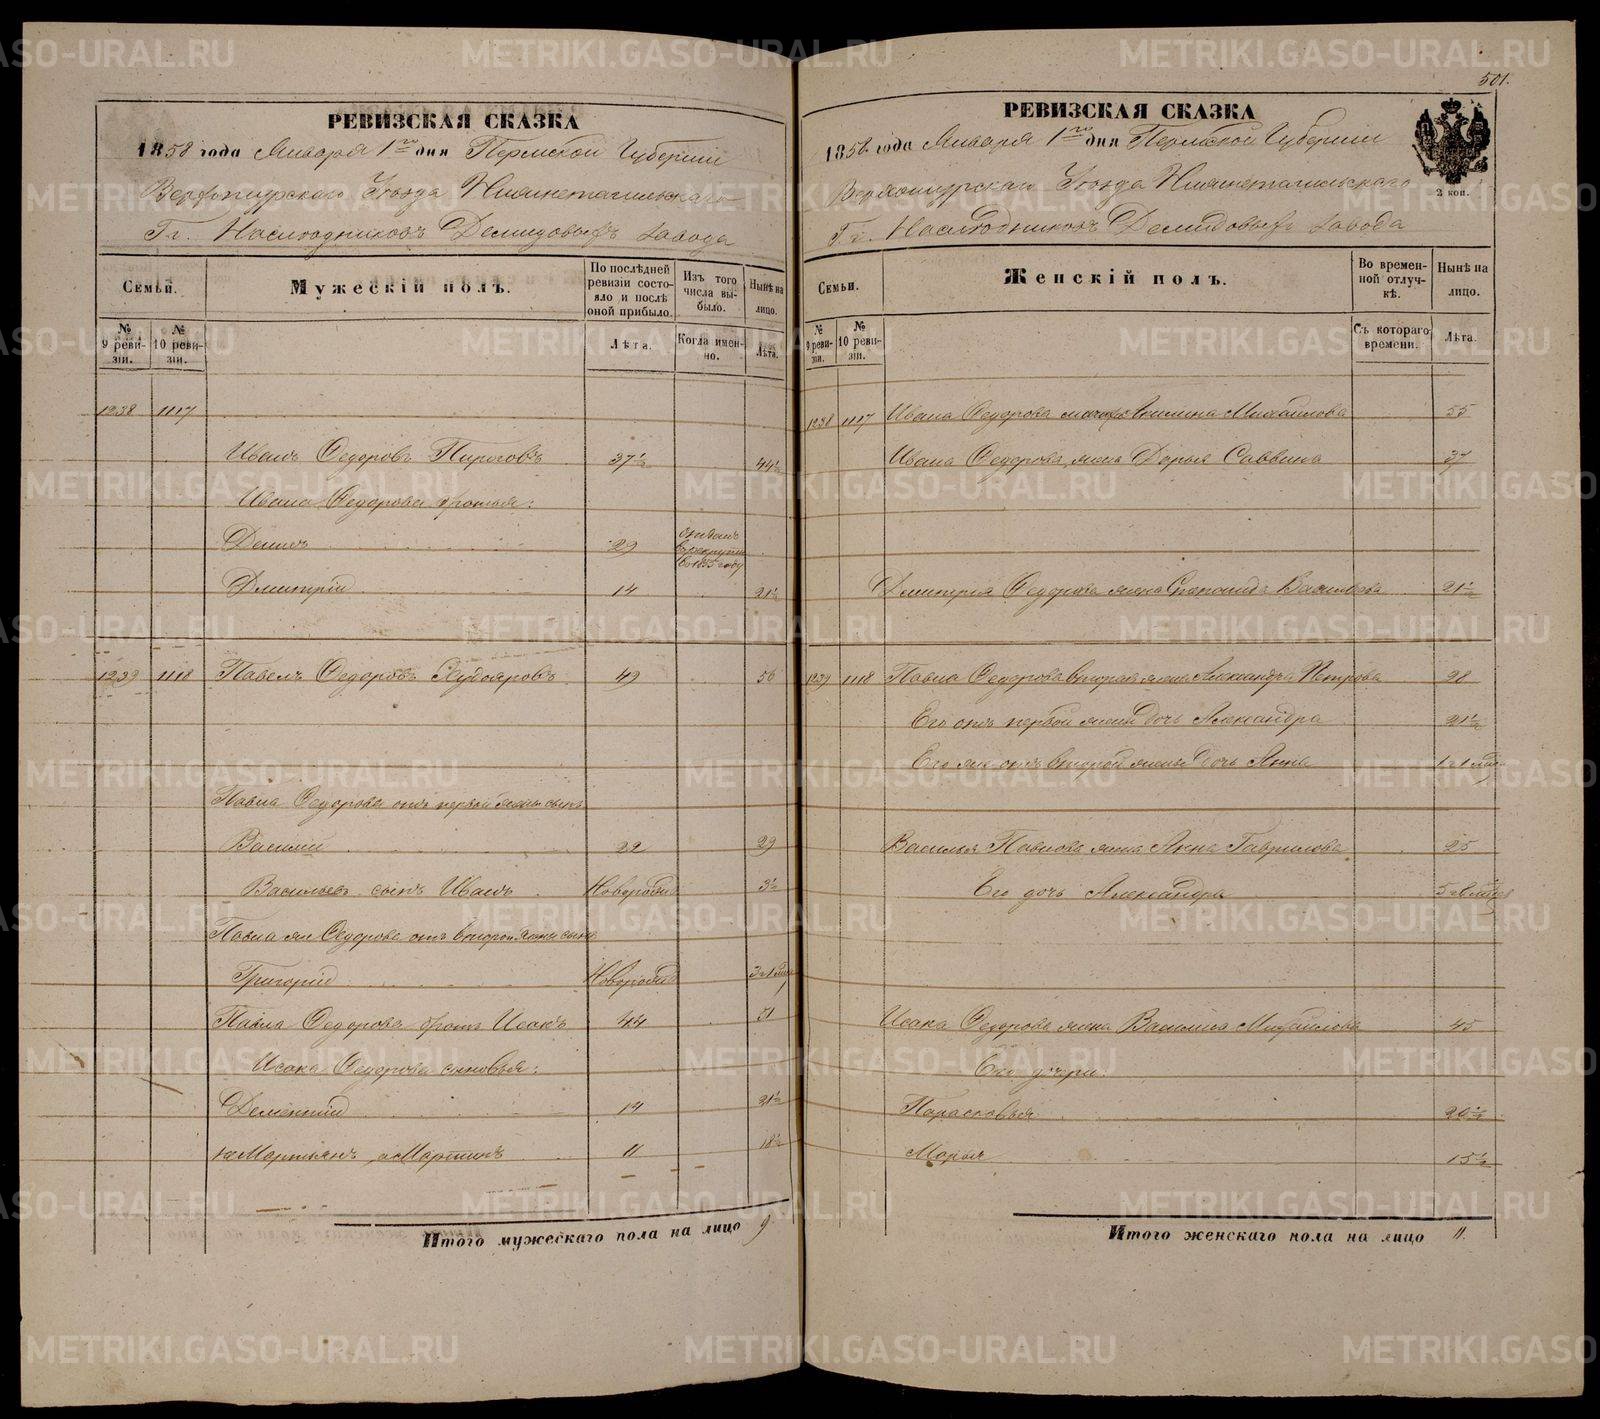 501.
РЕВИЗСКАЯ СКАЗКА
1858 года Января 1го дня Пермской Губернiи
Верхотурскаго Уѣзда Нижнетагильскаго
Г.г. Наслѣдниковъ Демидовыхъ завода
Семьи.
Мужескiй полъ.
По послѣдней ревизiи состояло и послѣ оной прибыло.
Изъ того числа выбыло.
Нынѣ на лицо.
№ 9 ревизiи.
№ 10 ревизiи.
Лѣта.
Когда именно.
Лѣта.
1238 1117
Иванъ Федоровъ Пироговъ 37½ 44½
Ивана Федорова братья:
Денисъ 29 Отданъ в рекруты в 1855 году
Дмитрiй 14 21½
1239 1118 Павелъ Федоровъ Худояровъ 49 56
Павла Федорова отъ первой жены сынъ
Василiй 22 29
Васильевъ сынъ Иванъ Новорожд 3½
Павла же Федорова отъ второй жены сынъ
Григорiй Новорожд 3 1 мѣс
Павла Федорова братъ Исакъ 44 51
Исака Федорова сыновья:
Дементiй 14 21½
Мартьянъ а Мартинъ 11 18½
Итого мужескаго пола на лицо 9
РЕВИЗСКАЯ СКАЗКА
1858 года Января 1го дня Пермской Губернiи
Верхотурскаго Уѣзда Нижнетагильскаго
Г.г. Наслѣдниковъ Демидовыхъ завода
2 коп.
Семьи.
Женскiй полъ.
Во временной отлучкѣ.
Нынѣ на лицо.
№ 9 ревизiи.
№ 10 ревизiи.
Съ котораго времени.
Лѣта.
1238 1117 Ивана Федорова мачиха Акилина Михайлова 55
Ивана Федорова жена Дарья Саввина 37
Дмитрiя Федорова жена Степанида Васильева 21½
1239 1118 Павла Федорова вторая жена Александра Петрова 28
Его отъ первой жены дочь Александра 21½
Его же отъ второй жены дочь Анна 1 1 мѣс
Василья Павлова жена Анна Гаврилова 25
Его дочь Александра
Исака Федорова жена Василиса Михайлова 45
Его дочери:
Парасковья 20½
Марья 15½
Итого женскаго пола на лицо 11.
METRIKI.GASO-URAL.RU